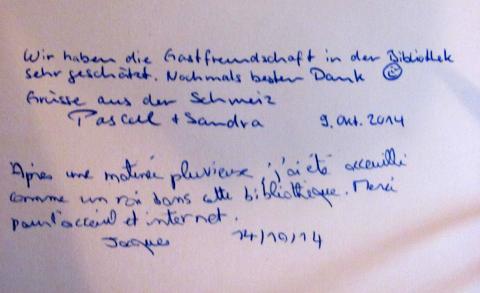 Wir haben die Gastfreundschaft in der Bibliothek
sehr geschätzt. Nochmals besten Dank ☺
Grüsse aus der Schweiz
Pascal + Sandra 9. Okt. 2014
Après une matinée pluvieuse, j'ai été acceuilli
comme un roi dans cette bibliothèque. Merci
pour l'acceuil et internet.
Jacques 14/10/14